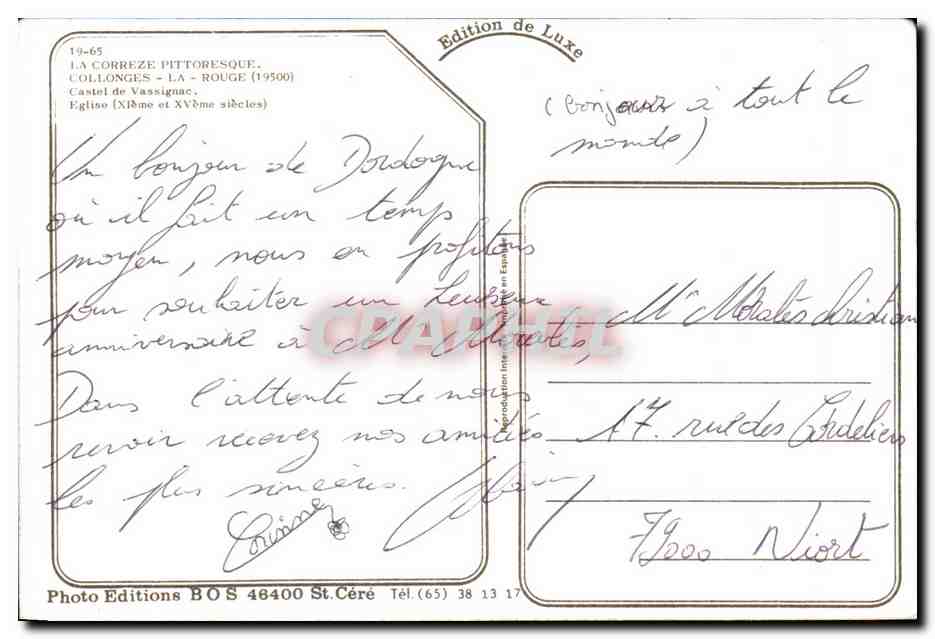 Edition de Luxe
19-65
LA CORREZE PITTORESQUE.
COLLONGES - LA - ROUGE (19500)
Castel de Vassignac.
Eglise (XIème et XVème siècles)
(bonjour à tout le
monde)
Un bonjour de Dordogne
où il fait un temps
moyen, nous en profitons
pour souhaiter un heureux
anniversaire à Mr Moralès,
Dans l'attente de nous
revoir recevez nos amitiés
les plus sincères.
Corinne
Mr Moralès Christian
17. rue des Cordeliers
79000 Niort
Reproduction Interdite en Espagne
CPAPHIL
Photo Editions BOS 46400 St. Céré Tél. (65) 38 13 17